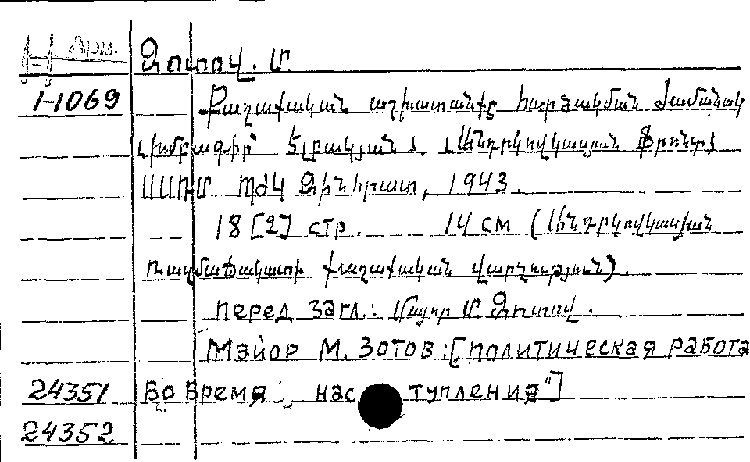 Արմ. Զոտով. Մ
1-1069 Քաղաքական աշխատանքը հարձակման ժամանակ
Լիմբագիր՝ Անդրկովկասյան Ֆրոնտ
ՍՍՌՄ ՊԺԿ Զինհրատ, 1943.
18 [2] стр. 14 см (Անդրկովկասյան
ռազմաճակատի քաղաքական վարչություն).
перед загл.: Մայոր Մ. Զոտով.
Майор М. Зотов: [политическая работа
24351 во время наступления"]
24352